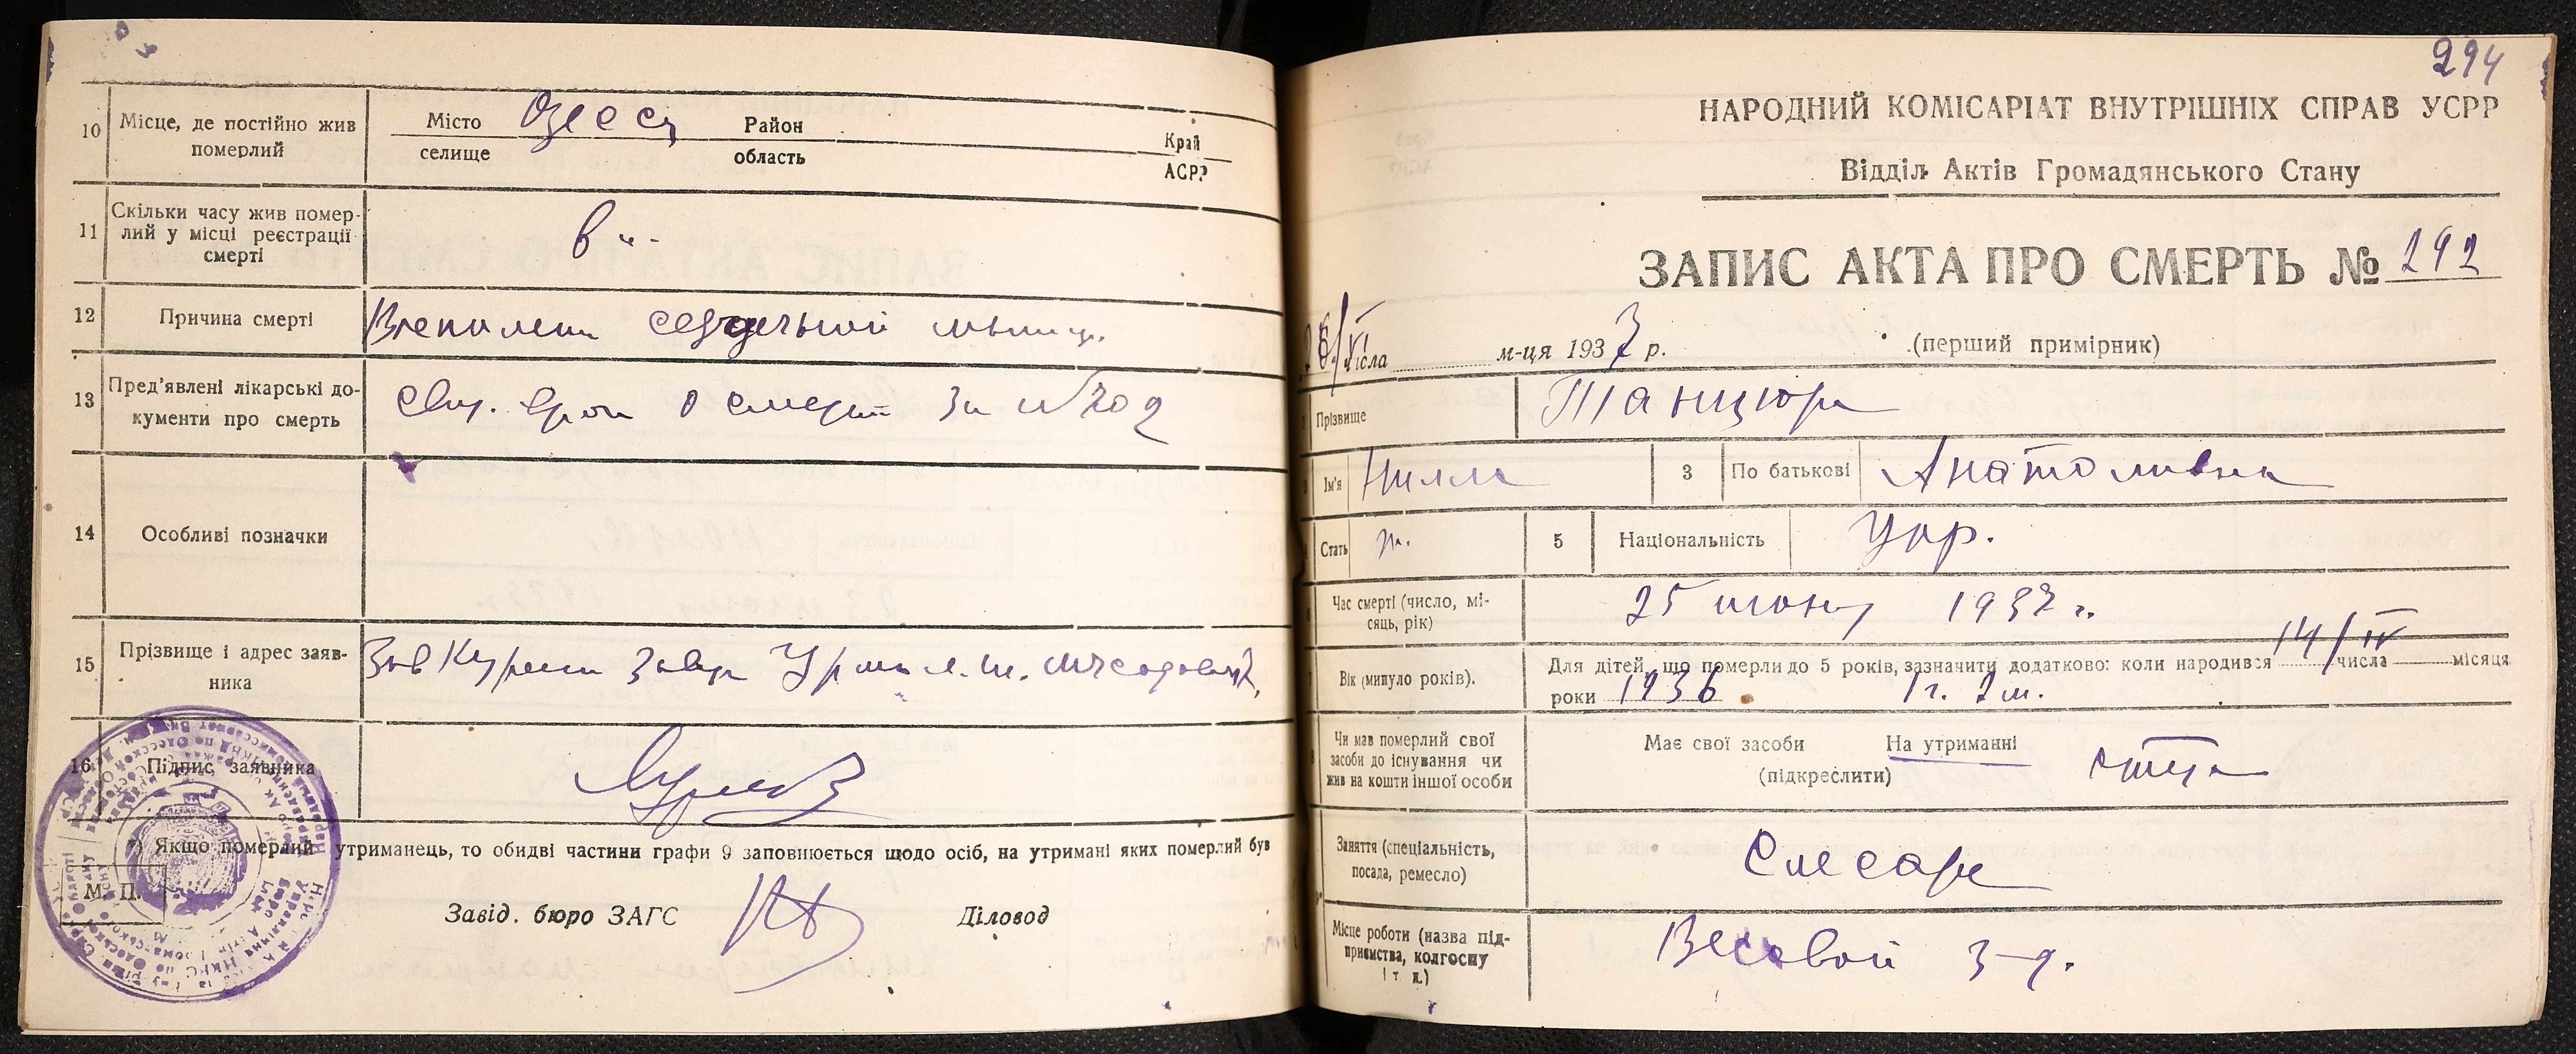 10
Місце, де постійно жив
померлий
Місто
селище
Одесса
Район
область
Край
АСРР
11
Скільки часу жив помер-
лий у місці реєстрації
смерті
12
Причина смерті
сердечной мышцы.
13
Пред'явлені лікарські до-
кументи про смерть
врач о смерти за №202
14
Особливі позначки
15
Прізвище і адрес заяв-
ника
16
Підпис, заявника
*) Якщо померлий утриманець, то обидві частини графи 9 заповнюється щодо осіб, на утримані яких померлий був
М. П.
Завід. бюро ЗАГС
Діловод
294
НАРОДНИЙ КОМІСАРІАТ ВНУТРІШНІХ СПРАВ УСРР
Відділ Актів Громадянського Стану
ЗАПИС АКТА ПРО СМЕРТЬ № 292
26/VI числа м-ця 1937 р.
(перший примірник)
Прізвище
Танцюра
Ім'я
Нилла
3
По батькові
Анатоливна
Стать
ж.
5
Національність
Укр.
Час смерті (число, мі-
сяць, рік)
25 июня 1937 г.
Вік (минуло років).
Для дітей, що померли до 5 років, зазначити додатково: коли народився 14/IV числа місяця
роки 1936 1 г. 2 м.
Чи мав померлий свої
засоби до існування чи
жив на кошти іншої особи
Має свої засоби На утриманні
(підкреслити)
отца
Заняття (спеціальність,
посада, ремесло)
Слесарь
Місце роботи (назва під-
приємства, колгоспу
і т. п.)
Весовой з-д.